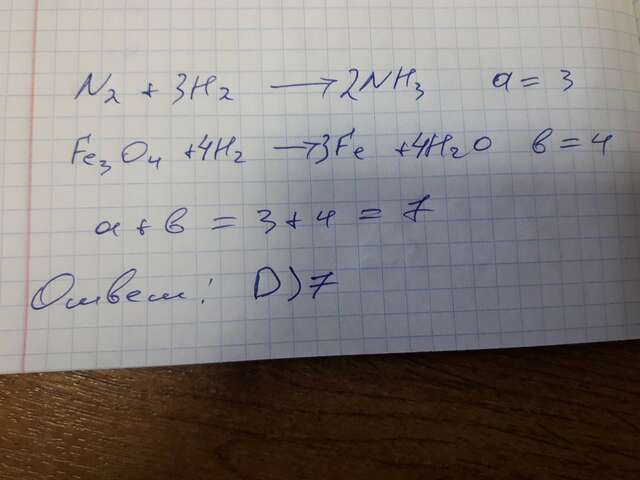 N₂ + 3H₂ ⟶ 2NH₃ a = 3
Fe₃O₄ + 4H₂ ⟶ 3Fe + 4H₂O в = 4
a + в = 3 + 4 = 7
Ответ: D) 7